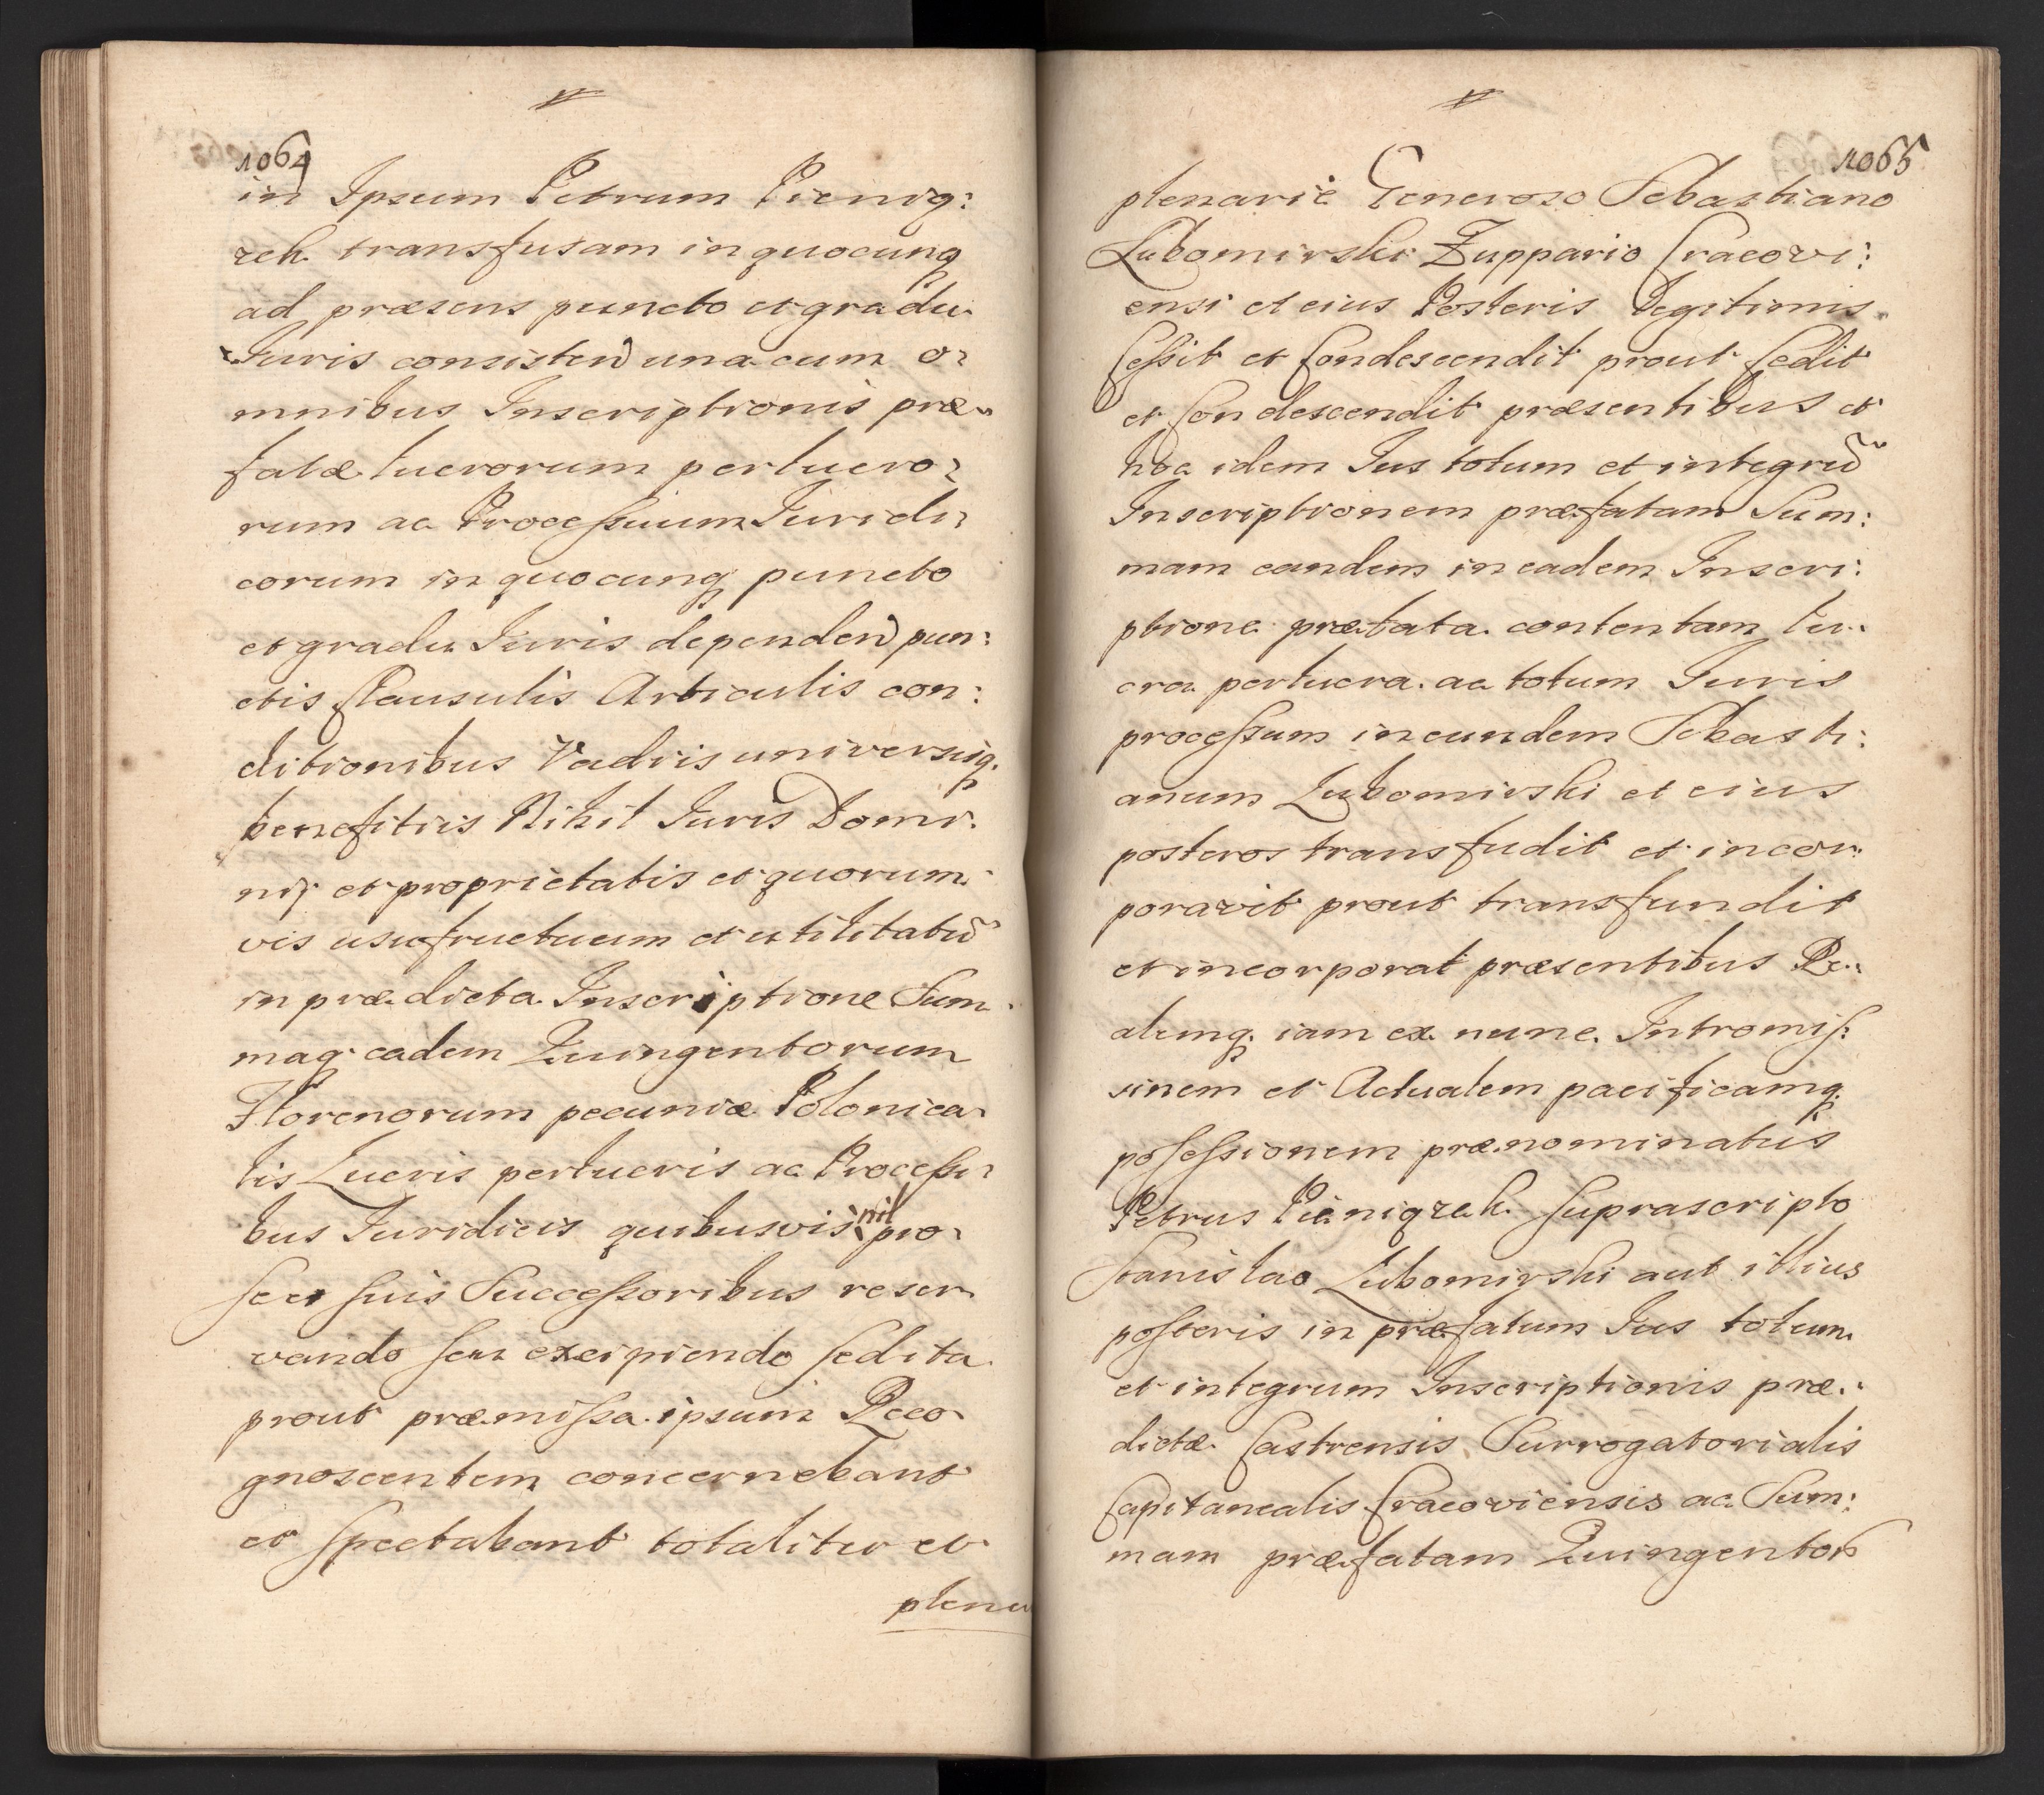 1064
in Ipsum Petrum Pienią:
zek transfusam in quocunq
ad præsens puncto et gradu
Iuris consisten̄ una cum o:
mnibus Inscriptionis præ:
fatæ lucrorum perlucro:
rum ac Processuum Iuridi:
corum in quocunq puncto
et gradu Iuris dependen̄ pun:
ctis Clausulis Articulis con:
ditionibus Vadiis universisq.
benefitiis Nihil Iuris Domi:
nij et proprietatis et quorum:
vis usufructuum et utilitatū
in prædicta Inscriptione Sum:
maq. eadem Quingentorum
Florenorum pecuniæ Polonica:
lis Lucris perlucris ac Processi:
bus Iuridicis quibusvis nil pro
se et suis Successoribus reser:
vando seu excipiendo sed ita
prout præmissa ipsum Reco:
gnoscentem concernebant
et spectabant totaliter et
plena
1065
plenarie Generoso Sebastiano
Lubomirski Zuppario Cracovi:
ensi et eius Posteris Legitimis
Cessit et Condescendit prout Cedit
et Condescendit præsentibus et
hoc idem Ius totum et integrū
Inscriptionem præfatam Sum:
mam eandem in eadem Inscri:
ptione prætata contentam lu:
cra perlucra ac totum Iuris
processum in eundem Sebasti:
anum Lubomirski et eius
posteros transfudit et incor:
poravit prout transfundit
et incorporat præsentibus Re:
alemq. iam ex nunc Intromis:
sinem et Actualem pacificamq.
possessionem prænominatus
Petrus Pieniązek suprascripto
Stanislao Lubomirski aut illius
posteris in præfatum Ius totum
et integrum Inscriptionis præ:
dictæ Castrensis Surrogatorialis
Capitanealis Cracoviensis ac Sum:
mam præfatam Quingentor